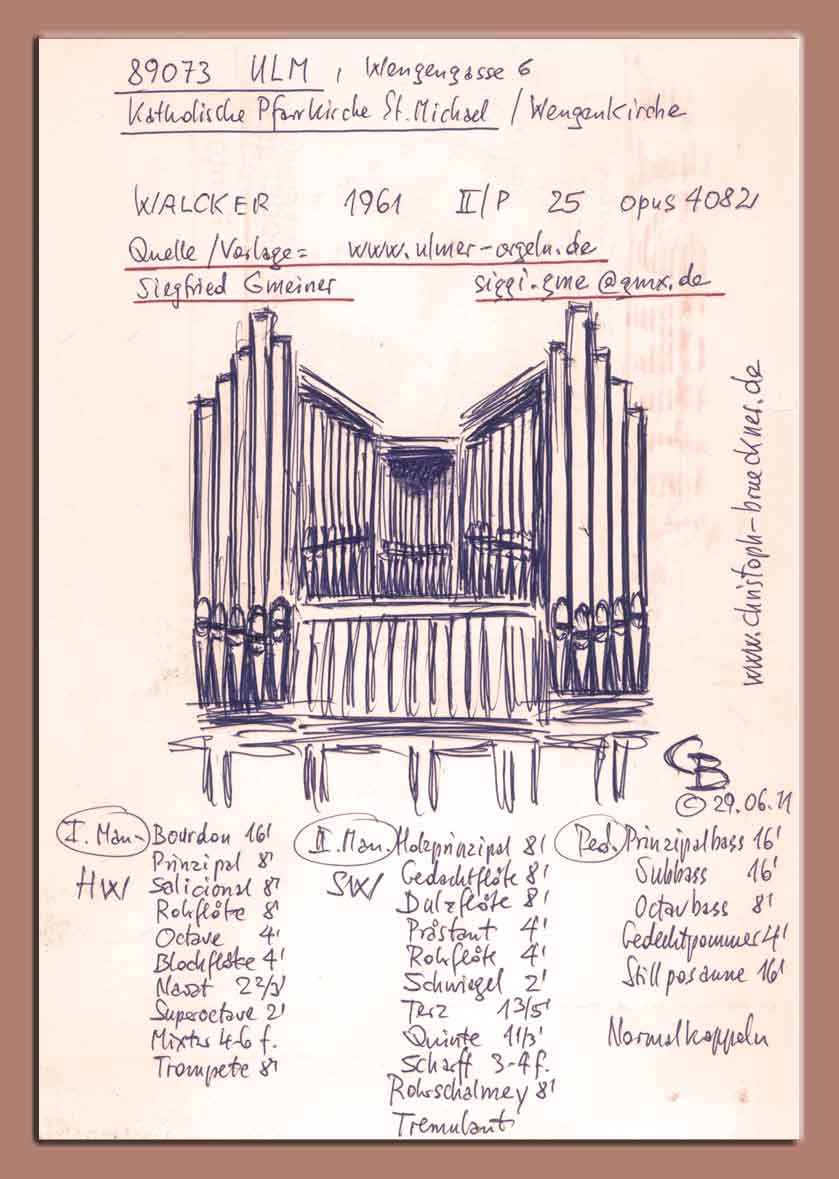 89073 ULM, Wengengasse 6
Katholische Pfarrkirche St. Michael / Wengenkirche
WALCKER 1961 II/P 25 opus 4082
Quelle / Vorlage = www.ulmer-orgeln.de
Siegfried Gmeiner siggi.gme@gmx.de
www.christoph-brueckner.de
CB
© 29.06.11
I. Man.
HW
Bourdon 16'
Prinzipal 8'
Salicional 8'
Rohrflöte 8'
Octave 4'
Blockflöte 4'
Nasat 2 2/3'
Superoctave 2'
Mixtur 4-6 f.
Trompete 8'
II. Man.
SW
Holzprinzipal 8'
Gedacktflöte 8'
Dulzflöte 8'
Prästant 4'
Rohrflöte 4'
Schwiegel 2'
Terz 1 3/5'
Quinte 1 1/3'
Scharff 3-4 f.
Rohrschalmey 8'
Tremulant
Ped.
Prinzipalbass 16'
Subbass 16'
Octavbass 8'
Gedecktpommer 4'
Stillposaune 16'
Normalkoppeln